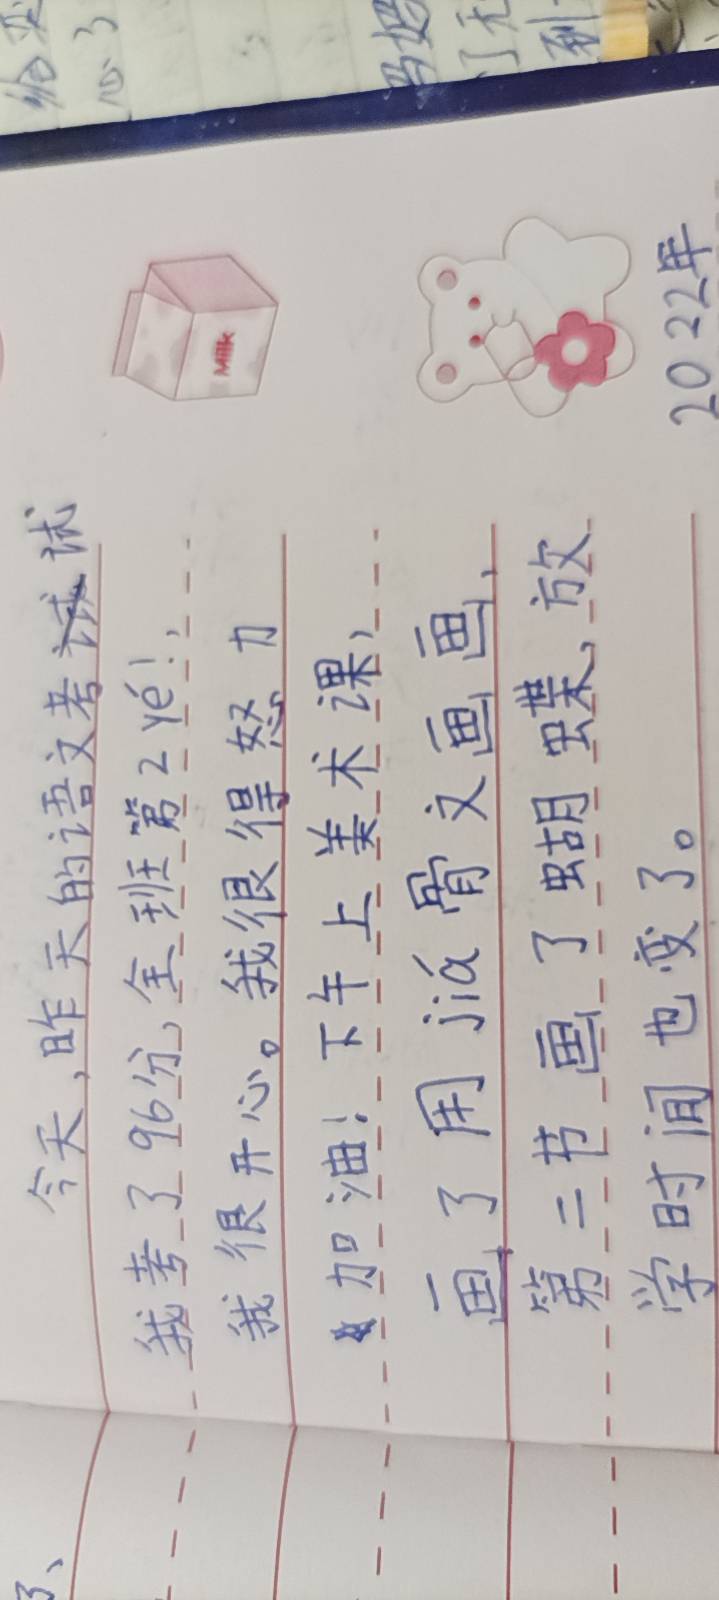 今天,昨天的语文考试
我考了96分,全班第2yé!,
我很开心。我很很得怒力
加油!下午上美术课,
画了用jiá骨文画画,
第二节画了蝴蝶,放
学时间也变了。
Milk
2022年